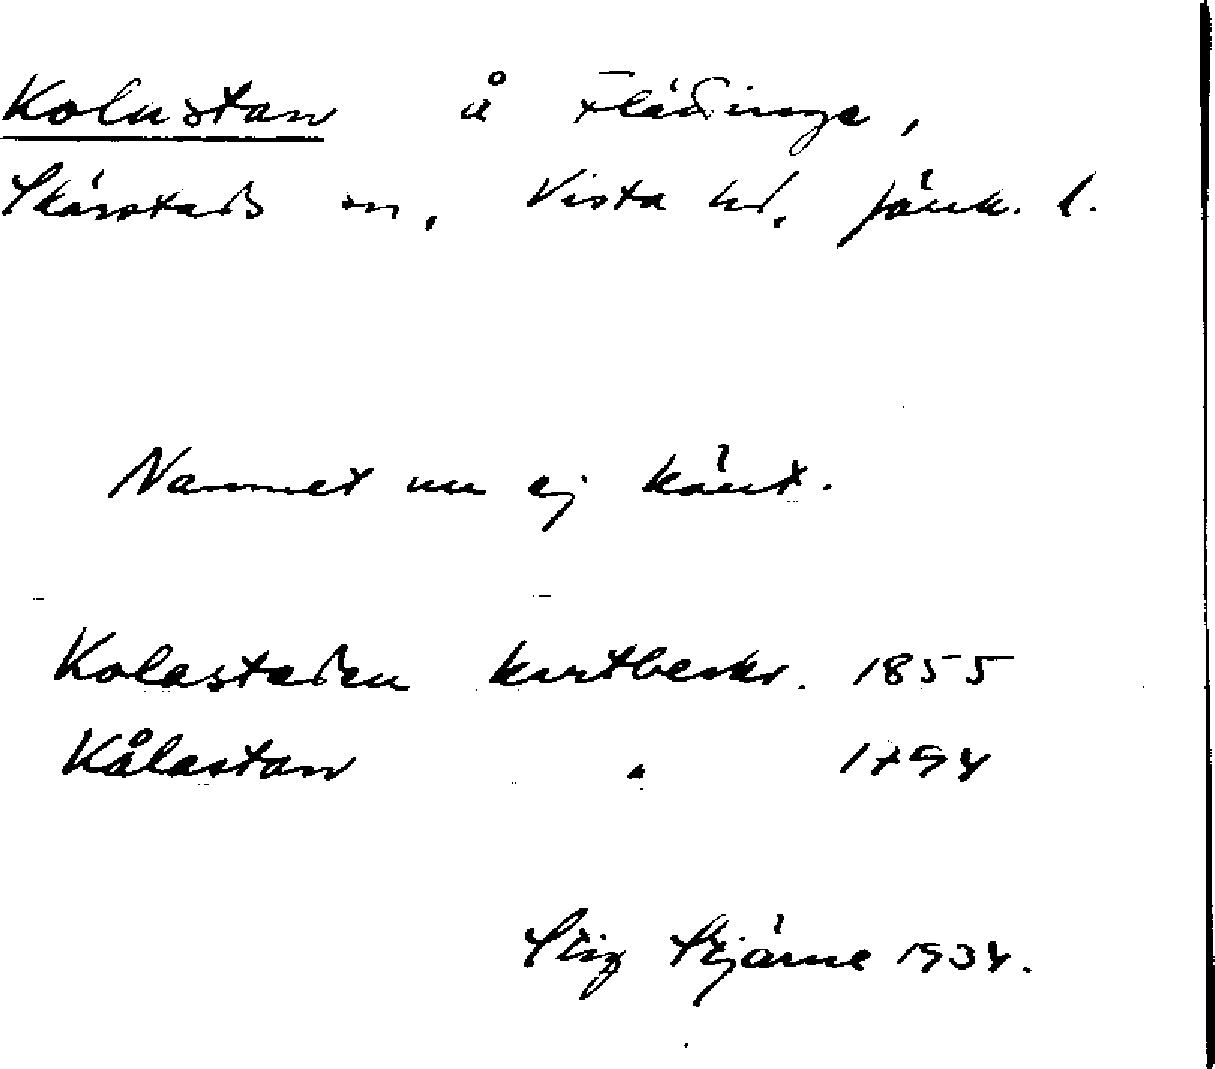 Kolastan å Flädinge,
Skärstads sn, Vista hd, Jönk. l.
Namnet nu ej känt.
Kolastaden kartbeskr. 1855
Kålastan " 1794
Stig Stjärne 1934.